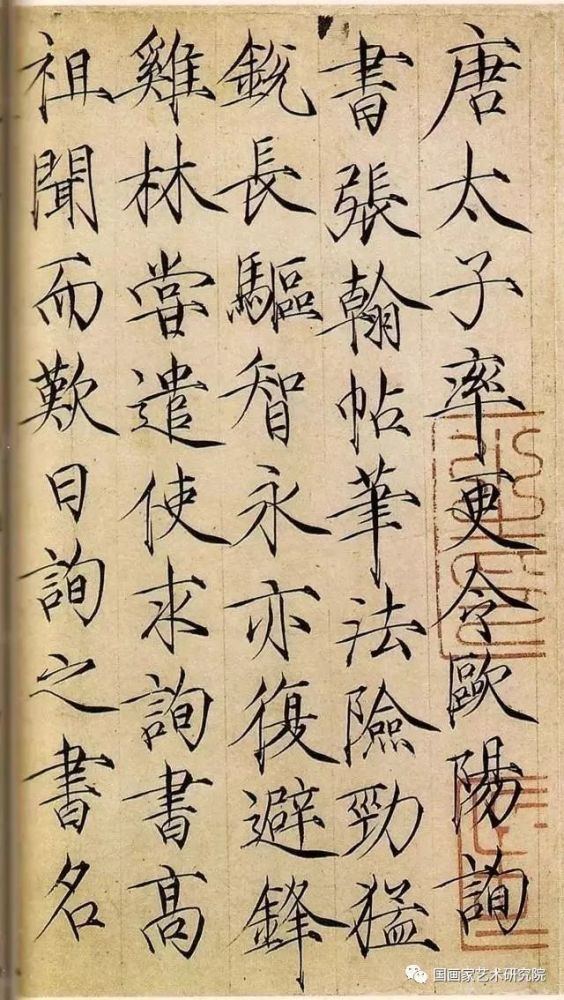 唐太子率更令歐陽詢
書張翰帖筆法險勁猛
銳長驅智永亦復避鋒
雞林嘗遣使求詢書高
祖聞而歎曰詢之書名
国画家艺术研究院